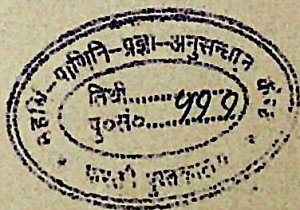 महर्षि-पाणिनि-प्रज्ञा-अनुसन्धान
तिथी..............
पु०सं०..............५११
पुस्तकालय